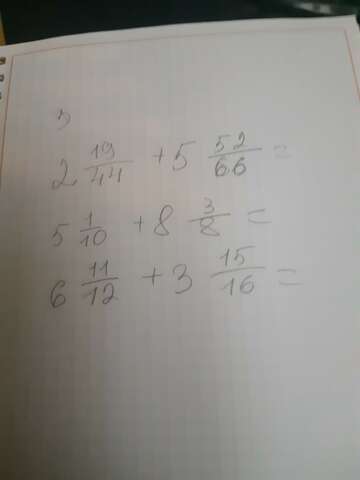 3
2 19/44 + 5 52/66 =
5 1/10 + 8 3/8 =
6 11/12 + 3 15/16 =